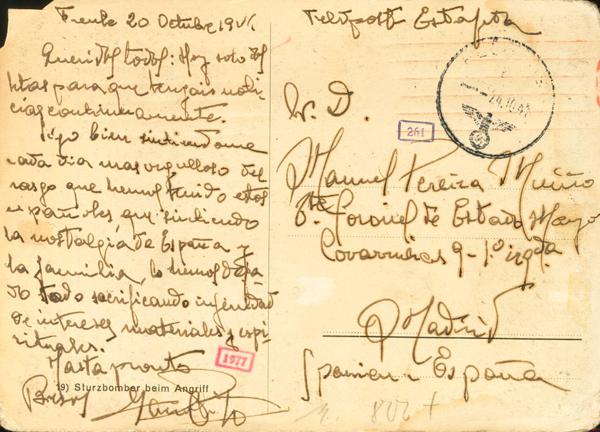 Frente 20 Octubre 1941
Queridos todos: Hoy solo dos
letras para que tengais noti-
cias continuamente.
Sigo bien sintiendome
cada dia mas orgulloso del
rasgo que hemos tenido estos
españoles que sintiendo
la nostalgia de España y
la familia, lo hemos deja-
do todo sacrificando infinidad
de intereses materiales y espi-
rituales.
Hasta pronto
Besos
19) Sturzbomber beim Angriff
1977
Feldpost Estafeta
24.10.41
261
Sr. D.
Manuel Pereira Muiño
Tte Coronel de Estado Mayor
Covarrubias 9 - 1º izqda
Madrid
Spanien - España